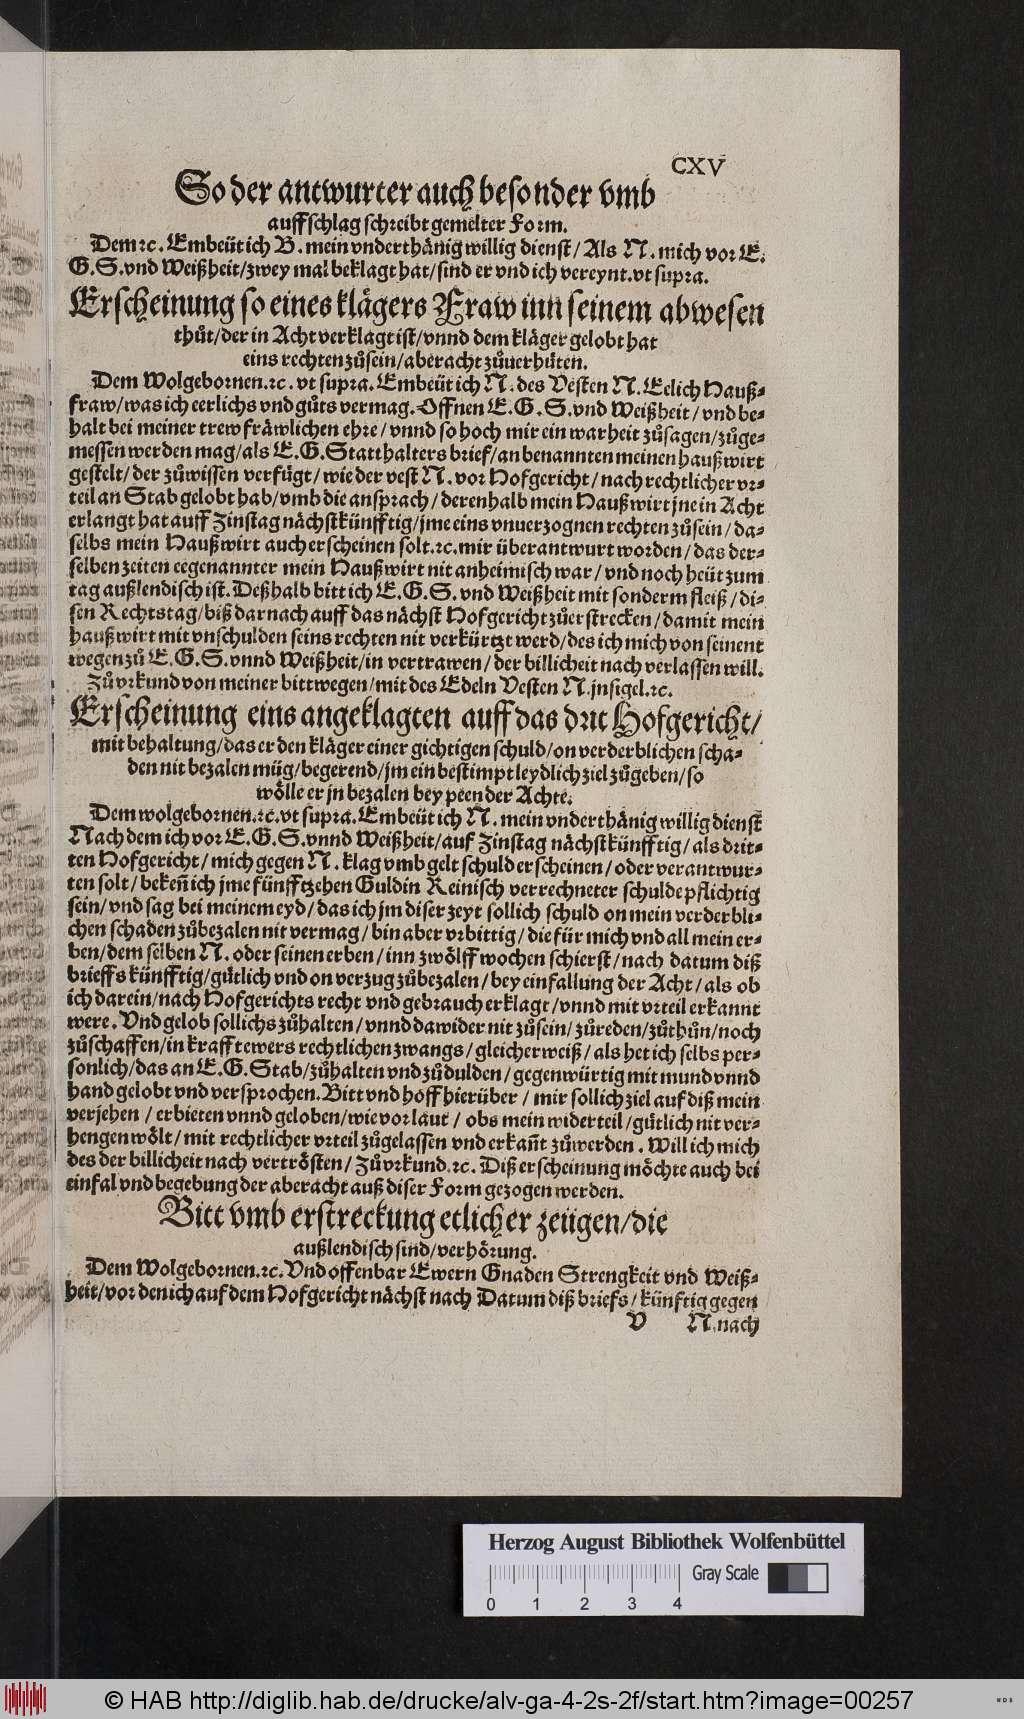 CXV
So der antwurter auch besonder vmb
auffschlag schreibt gemelter Form.
Dem ꝛc. Embeüt ich B. mein vnderthänig willig dienst / Als N. mich vor E.
G. S. vnd Weißheit / zwey mal beklagt hat / sind er vnd ich vereynt. vt supra.
Erscheinung so eines klägers Fraw inn seinem abwesen
thůt / der in Acht verklagt ist / vnnd dem kläger gelobt hat
eins rechten zůsein / aberacht zůuerhüten.
Dem Wolgebornen. ꝛc. vt supra. Embeüt ich N. des Vesten N. Eelich Hauß⸗
fraw / was ich eerlichs vnd gůts vermag. Offnen E. G. S. vnd Weißheit / vnd be⸗
halt bei meiner trew fräwlichen ehre / vnnd so hoch mir ein warheit zůsagen / zůge⸗
messen werden mag / als E. G. Statthalters brief / an benannten meinen haußwirt
gestelt / der zůwissen verfügt / wie der vest N. vor Hofgericht / nach rechtlicher vr⸗
teil an Stab gelobt hab / vmb die ansprach / derenhalb mein Haußwirt jne in Acht
erlangt hat auff Zinstag nächstkünfftig / jme eins vnuerzognen rechten zůsein / da⸗
selbs mein Haußwirt auch erscheinen solt. ꝛc. mir überantwurt worden / das der⸗
selben zeiten eegenannter mein Haußwirt nit anheimisch war / vnd noch heüt zum
tag außlendisch ist. Deßhalb bitt ich E. G. S. vnd Weißheit mit sonderm fleiß / di⸗
sen Rechtstag / biß darnach auff das nächst Hofgericht zůerstrecken / damit mein
haußwirt mit vnschulden seins rechten nit verkürtzt werd / des ich mich von seinent
wegen zů E. G. S. vnnd Weißheit / in vertrawen / der billicheit nach verlassen will.
Zů vrkund von meiner bitt wegen / mit des Edeln Vesten N. jnsigel. ꝛc.
Erscheinung eins angeklagten auff das drit Hofgericht /
mit behaltung / das er den kläger einer gichtigen schuld / on verderblichen scha⸗
den nit bezalen müg / begerend / jm ein bestimpt leydlich ziel zůgeben / so
wölle er jn bezalen bey peen der Achte.
Dem wolgebornen. ꝛc. vt supra. Embeüt ich N. mein vnderthänig willig dienst
Nach dem ich vor E. G. S. vnnd Weißheit / auf Zinstag nächstkünfftig / als drit⸗
ten Hofgericht / mich gegen N. klag vmb geltschuld erscheinen / oder verantwur⸗
ten solt / bekeñ ich jme fünfftzehen Guldin Reinisch verrechneter schulde pflichtig
sein / vnd sag bei meinem eyd / das ich jm diser zeyt sollich schuld on mein verderbli⸗
chen schaden zůbezalen nit vermag / bin aber vrbittig / die für mich vnd all mein er⸗
ben / dem selben N. oder seinen erben / inn zwölff wochen schierst / nach datum diß
brieffs künfftig / gütlich vnd on verzug zůbezalen / bey einfallung der Acht / als ob
ich darein / nach Hofgerichts recht vnd gebrauch erklagt / vnnd mit vrteil erkannt
were. Vnd gelob sollichs zůhalten / vnnd dawider nit zůsein / zůreden / zůthůn / noch
zůschaffen / in krafft ewers rechtlichen zwangs / gleicher weiß / als het ich selbs per⸗
sonlich / das an E. G. Stab / zůhalten vnd zů dulden / gegenwürtig mit mund vnnd
hand gelobt vnd versprochen. Bitt vnd hoff hierüber / mir sollich ziel auf diß mein
verjehen / erbieten vnnd geloben / wie vor laut / obs mein widerteil / gütlich nit ver⸗
hengen wölt / mit rechtlicher vrteil zůgelassen vnd erkañt zůwerden. Will ich mich
des der billicheit nach vertrösten / Zů vrkund. ꝛc. Diß erscheinung möchte auch bei
einfal vnd begebung der aberacht auß diser Form gezogen werden.
Bitt vmb erstreckung etlicher zeügen / die
außlendisch sind / verhörung.
Dem Wolgebornen. ꝛc. Vnd offenbar Ewern Gnaden Strengkeit vnd Weiß⸗
heit / vor den ich auf dem Hofgericht nächst nach Datum diß briefs / künftig gegen
V N. nach
Herzog August Bibliothek Wolfenbüttel
Gray Scale
0 1 2 3 4
© HAB http://diglib.hab.de/drucke/alv-ga-4-2s-2f/start.htm?image=00257